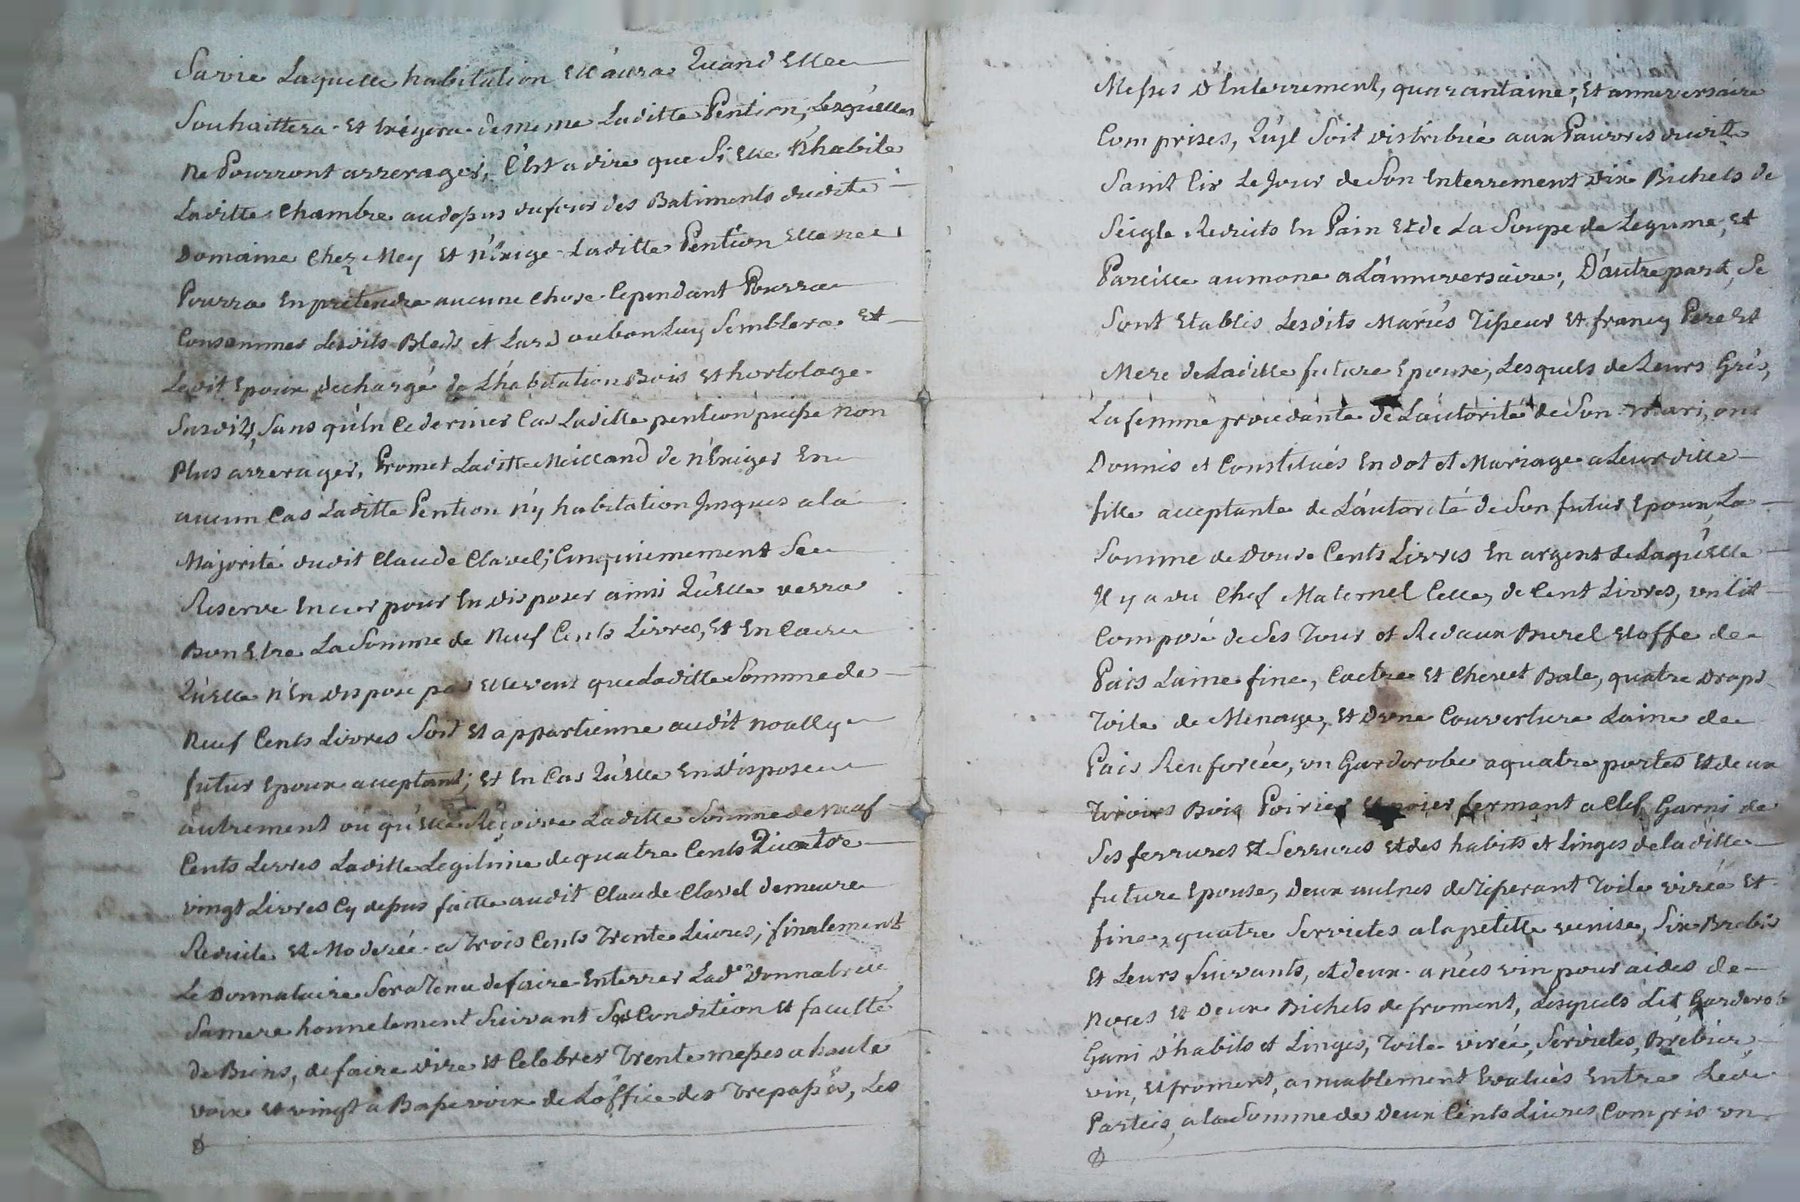 Sa vie Laquelle habitation Ell'aura Quand Elle
Souhaittera Et Exigera demême Laditte Pention, Lesquelles
Ne Pourront arrerager, C'Est a dire que Si Elle N'habite
Laditte Chambre audessus dufour des Batiments dudit
Domaine Chez Mey Et n'Exige Laditte Pention Elle ne
Pourra En prétendre aucune Chose Cependant Pourra
Consommer Lesdits Bleds et Lard oubon Luy Semblera Et
Ledit Epoux dechargé de L'habitation Bois Et hortolage
Susdits, Sans qu'En Cedernier Cas Laditte pention puisse Non
Plus arrerager, Promet Laditte Meilland de n'Exiger En
aucun Cas Laditte Pention n'y habitation Jusques a la
Majorité dudit Claude Clavel; Cinquiemement Se
Reserve Encor pour En disposer ainsi Qu'Elle verra
Bon Etre La Somme de Neuf Cents Livres, Et En Cas
Qu'Elle N'En dispose pas Elle veut que Laditte Somme de
Neuf Cents Livres Soit Et appartienne audit Noally
futur Epoux acceptant; Et En Cas Qu'Elle En dispose
autrement ou qu'Elle Reçoive Laditte Somme de Neuf
Cents Livres Laditte Legitime de quatre Cents Quatre
vingt Livres Cy dessus faitte audit Claude Clavel demeure
Reduite Et Moderée a Trois Cents Trente Livres; finalement
Le Donnataire Sera Tenu de faire Enterrer Lad.e Donnatrice
Sa mere honnetement Suivant Sa Condition Et faculté
de Biens, de faire dire Et Celebrer Trente messes a haute
voix Et vingt a Basse voix de L'office des Trepassés, Les
Messes D'Interrement, quarantaine, Et anniversaire
Comprises, Qu'yl Soit distribué aux Pauvres dudit
Saint Cir Le Jour de Son Enterrement dix Bichets de
Seigle Reduits En Pain Et de La Soupe de Legume, Et
Pareille aumone a L'anniversaire; D'autre part, Se
Sont Etablis Lesdits Mariés Tisseur Et francy Pere Et
Mere de Laditte future Epouse, Lesquels de Leurs Grés,
La femme procedante de L'autorité de Son mari, ont
Donnés et Constitués En dot et Mariage a Leurditte
fille acceptante de L'autorité de Son futur Epoux, La
Somme de Douze Cents Livres En argent de Laquelle
Il y a du Chef Maternel Celle de Cent Livres, un lit
Composé de Ses Tour et Rideaux Burel Etoffe de
Païs Laine fine, Coetre Et Chevet Bale, quatre draps
Toile de Menage, Et D'une Couverture Laine de
Païs Renforcée, un Garderobe a quatre portes Et deux
Tiroirs Bois Poirier Et noier fermant a Clef Garni de
Ses ferrures Et Serrures Et des habits et Linges de laditte
future Epouse, Deux aulnes de Tiserant Toile virée Et
fine, quatre Serviettes a la petitte venise, Six Brebis
Et Leurs Suivants, et deux anées vin pour aides de
Noces Et Deux Bichets de froment, Lesquels Lit Garderobe
Garni D'habits et Linges, Toile virée, Serviettes, Brebier
vin, Et froment, amiablement Evalués Entre Lesd.
Parties, a la Somme de Deux Cents Livres, Compris un